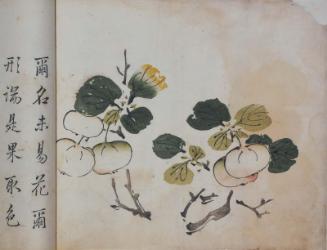 爾名未易花爾
形端是果取色